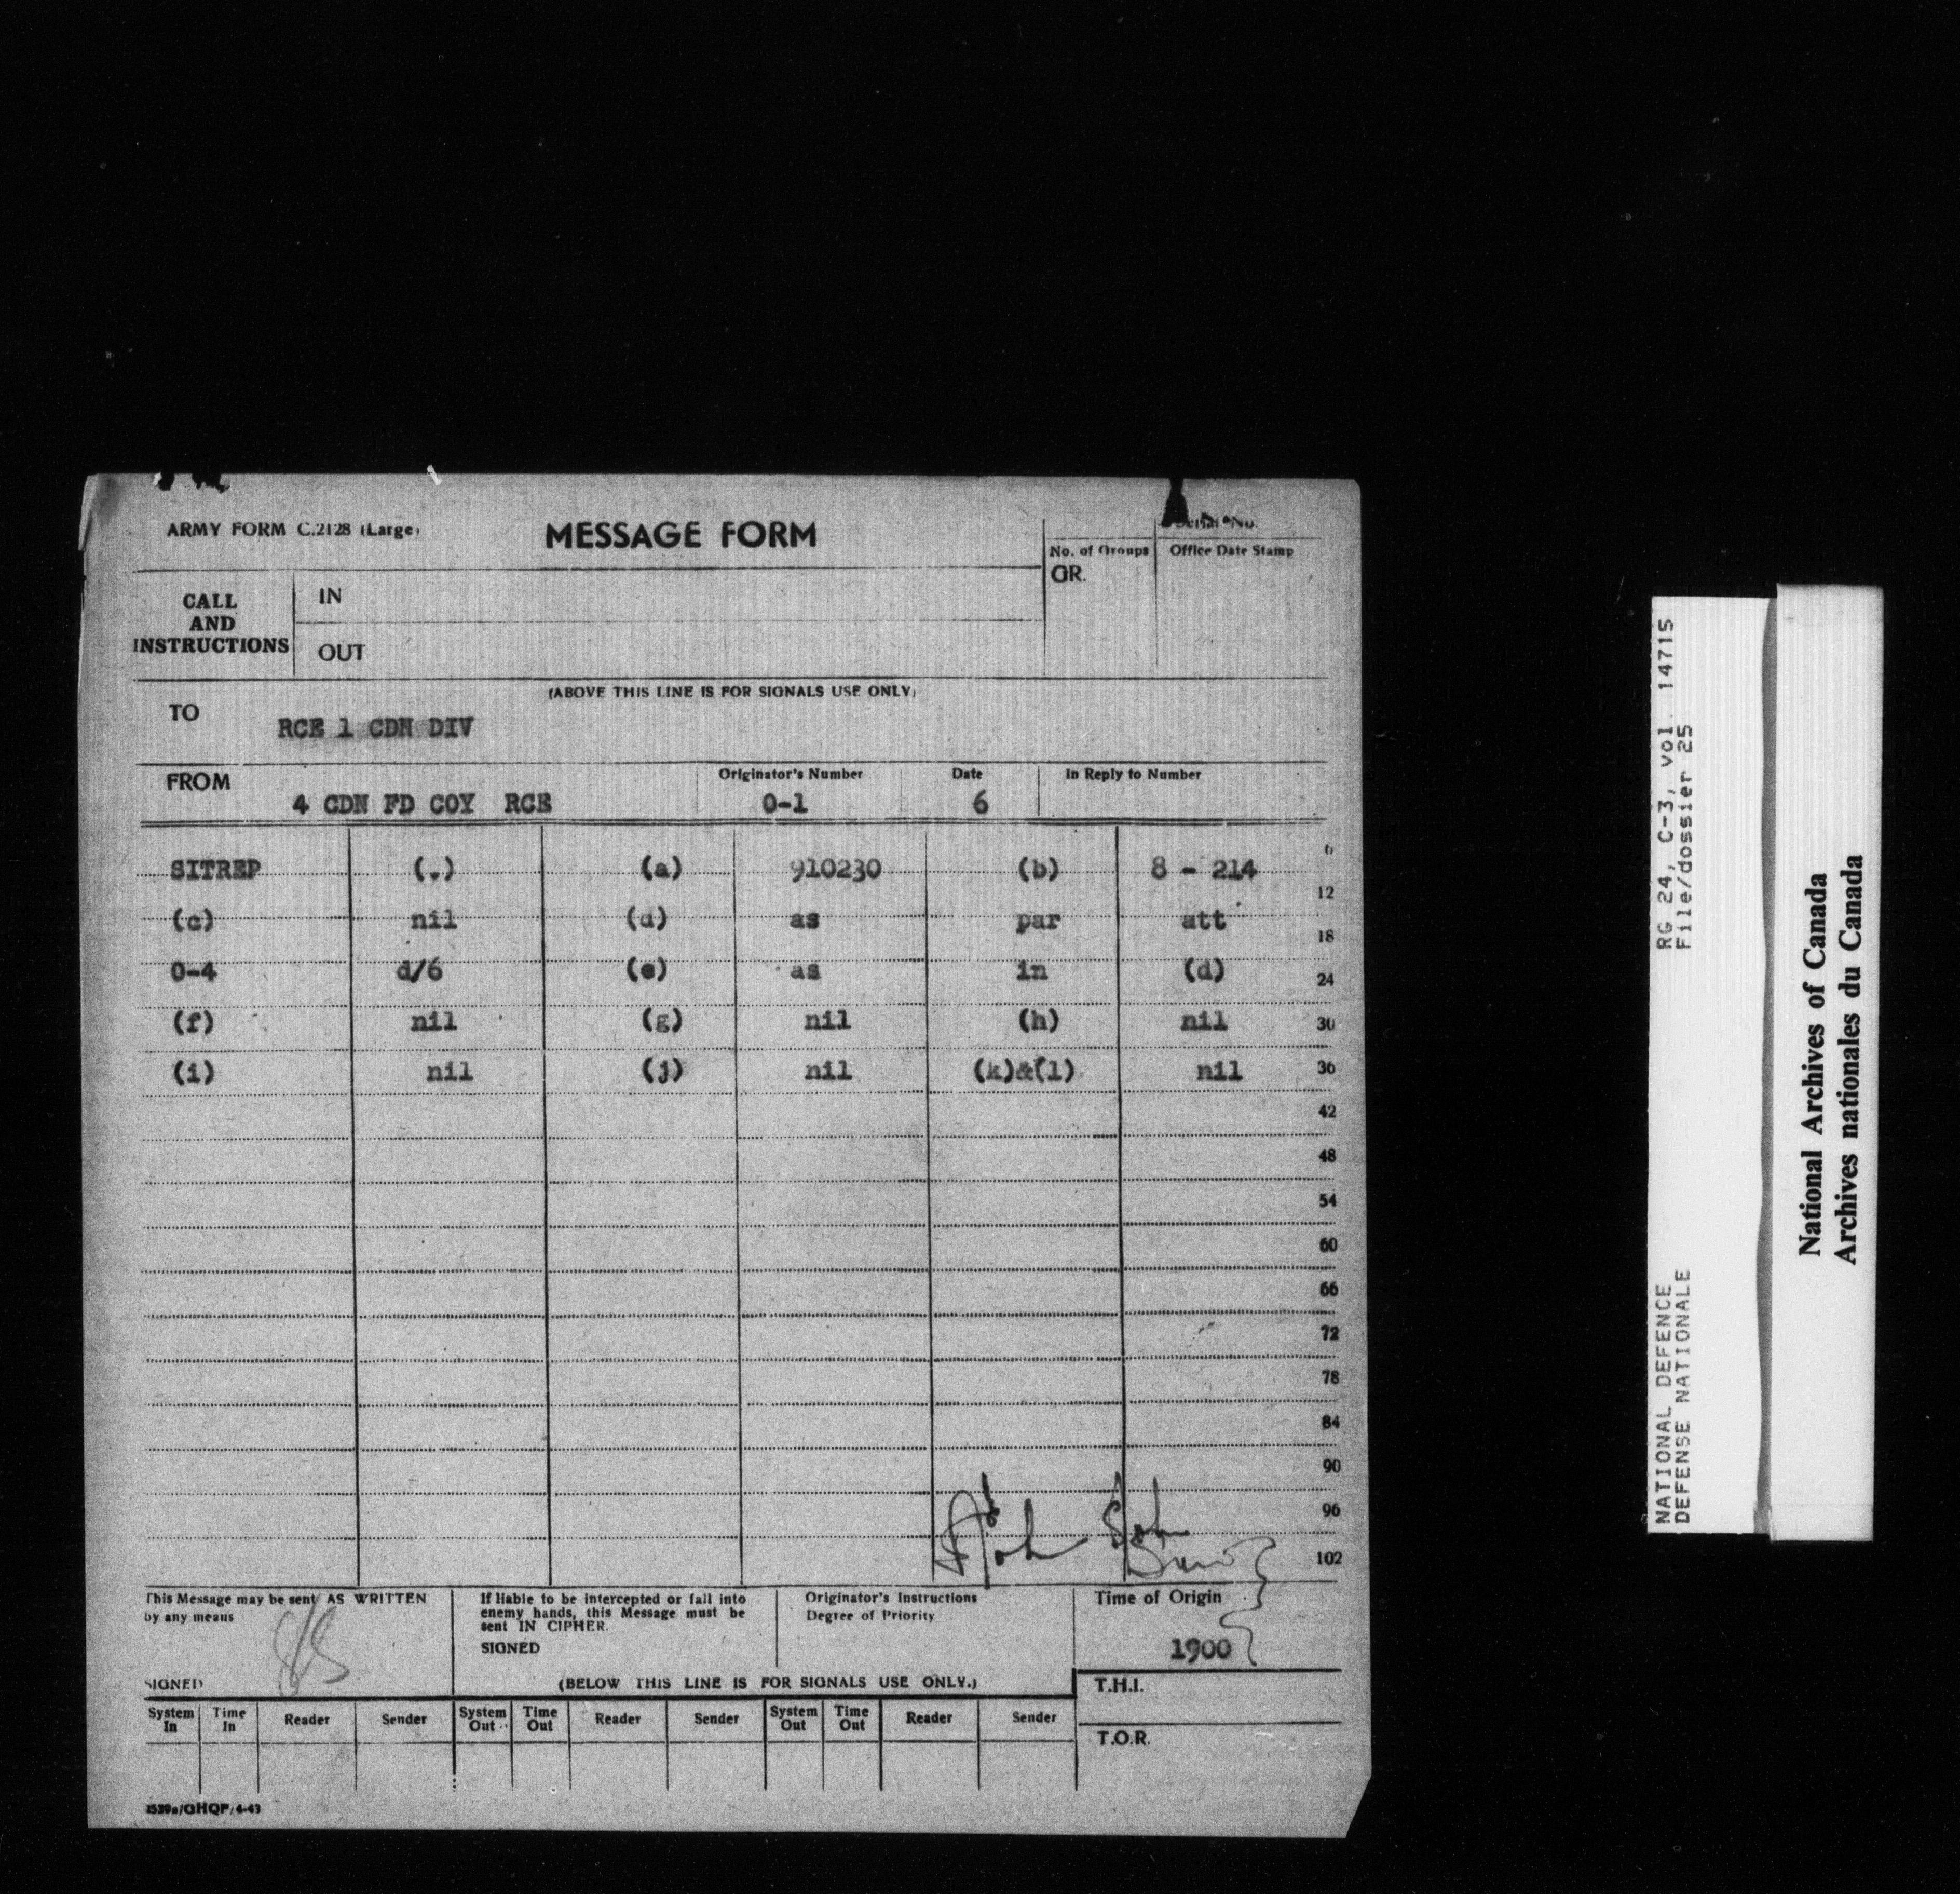 ARMY FORM C.2128 (Large)
MESSAGE FORM
Serial No.
No. of Groups
GR.
Office Date Stamp
CALL
AND
INSTRUCTIONS
IN
OUT
(ABOVE THIS LINE IS FOR SIGNALS USE ONLY)
TO
RCE 1 CDN DIV
FROM
4 CDN FD COY RCE
Originator's Number
0-1
Date
6
In Reply to Number
SITREP (.) (a) 910230 (b) 8 - 214
6
12
(c) nil (d) as par att
18
0-4 d/6 (e) as in (d)
24
(f) nil (g) nil (h) nil
30
(i) nil (j) nil (k)&(l) nil
36
42
48
54
60
66
72
78
84
90
96
102
This Message may be sent AS WRITTEN
by any means
SIGNED
If liable to be intercepted or fall into
enemy hands, this Message must be
sent IN CIPHER.
SIGNED
Originator's Instructions
Degree of Priority
Time of Origin
1900
(BELOW THIS LINE IS FOR SIGNALS USE ONLY.)
T.H.I.
T.O.R.
System In Time In Reader Sender System Out Time Out Reader Sender System Out Time Out Reader Sender
GHQP/4-43
RG 24, C-3, vol. 14715
File/dossier 25
NATIONAL DEFENCE
DEFENSE NATIONALE
National Archives of Canada
Archives nationales du Canada